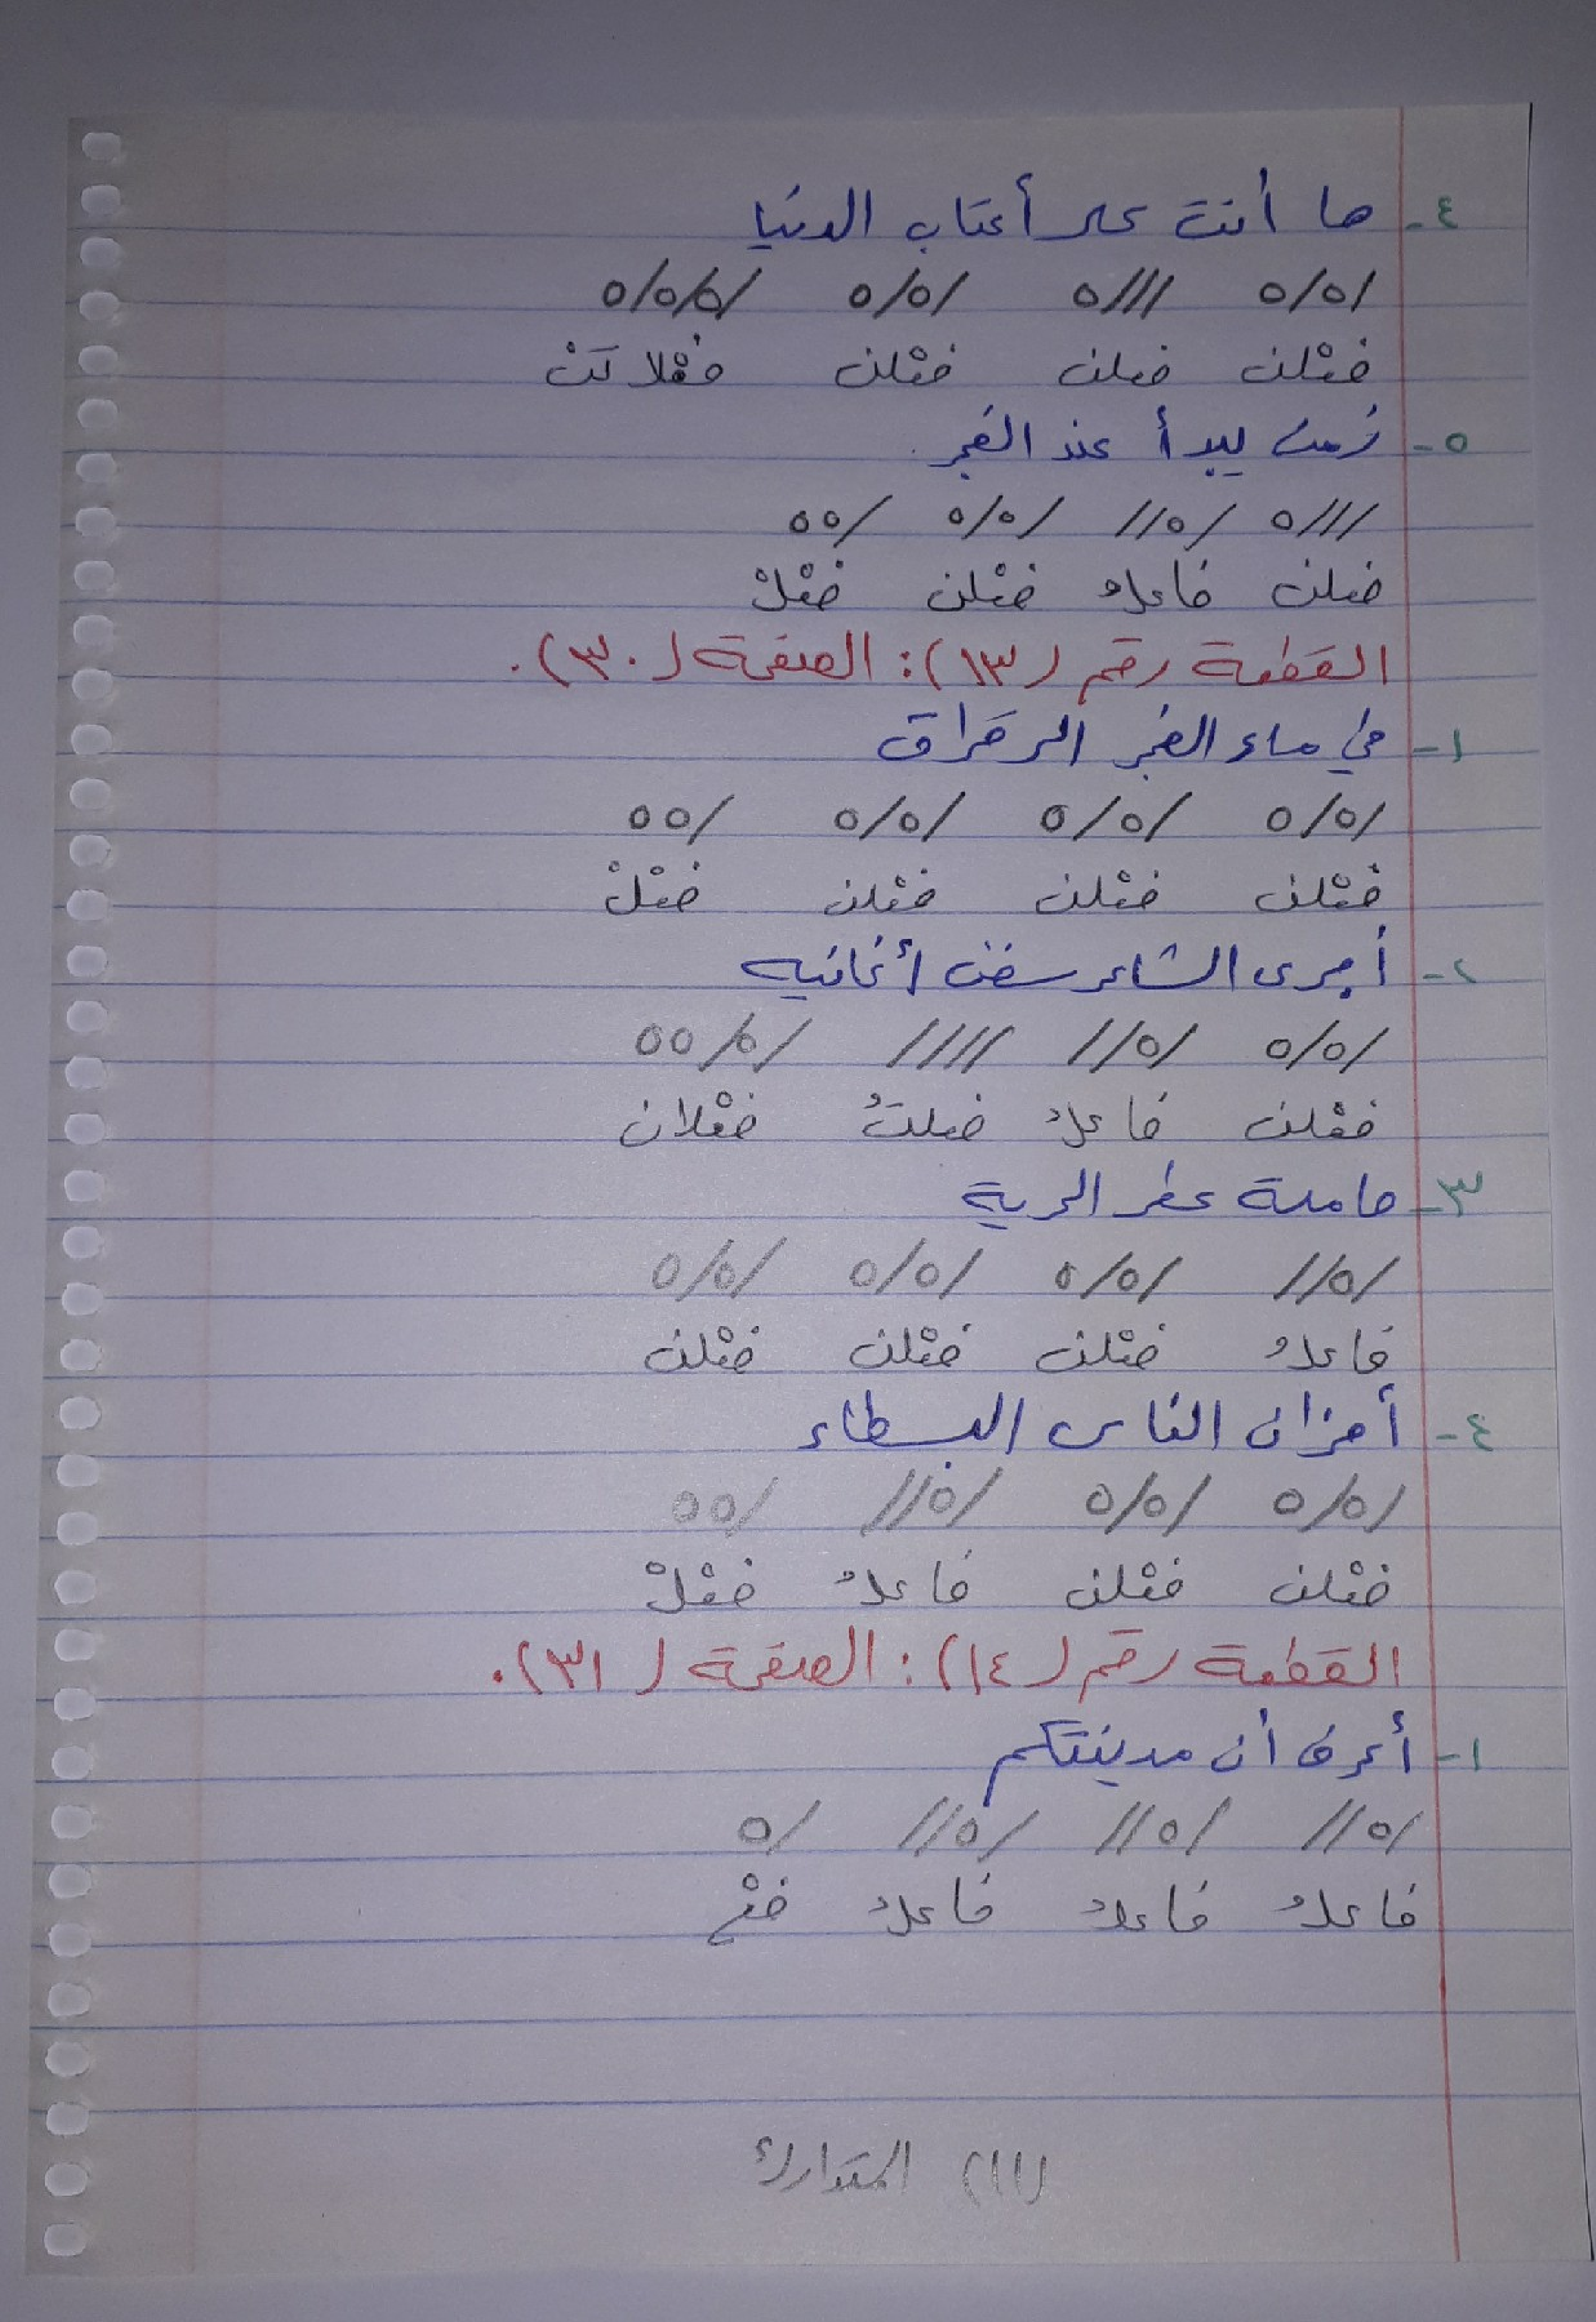 ٤- ها أنت على أعتاب الدنيا
/٥/٥ ///٥ /٥/٥ /٥/٥/٥
فعْلن فعلن فعْلن فعْلاتن
٥- زمن يبدأ عند الفجر
///٥ /٥// /٥/٥ /٥٥
فعلن فاعلُ فعْلن فعْلْ
القطعة رقم (١٣): الصفحة (٣٠).
١- في ماء الفجر الرقراق
/٥/٥ /٥/٥ /٥/٥ /٥٥
فعْلن فعْلن فعْلن فعْلْ
٢- أجرى الشاعر سفن أغانيه
/٥/٥ /٥// //// /٥/٥٥
فعْلن فاعلُ فعلتُ فعْلان
٣- حاملة عطر الحرية
/٥// /٥/٥ /٥/٥ /٥/٥
فاعلُ فعْلن فعْلن فعْلن
٤- أحزان الناس البسطاء
/٥/٥ /٥/٥ /٥// /٥٥
فعْلن فعْلن فاعلُ فعْلْ
القطعة رقم (١٤): الصفحة (٣١).
١- أعرف أن مدينتكم
/٥// /٥// /٥// /٥
فاعلُ فاعلُ فاعلُ فعْ
(١١) المتدارك